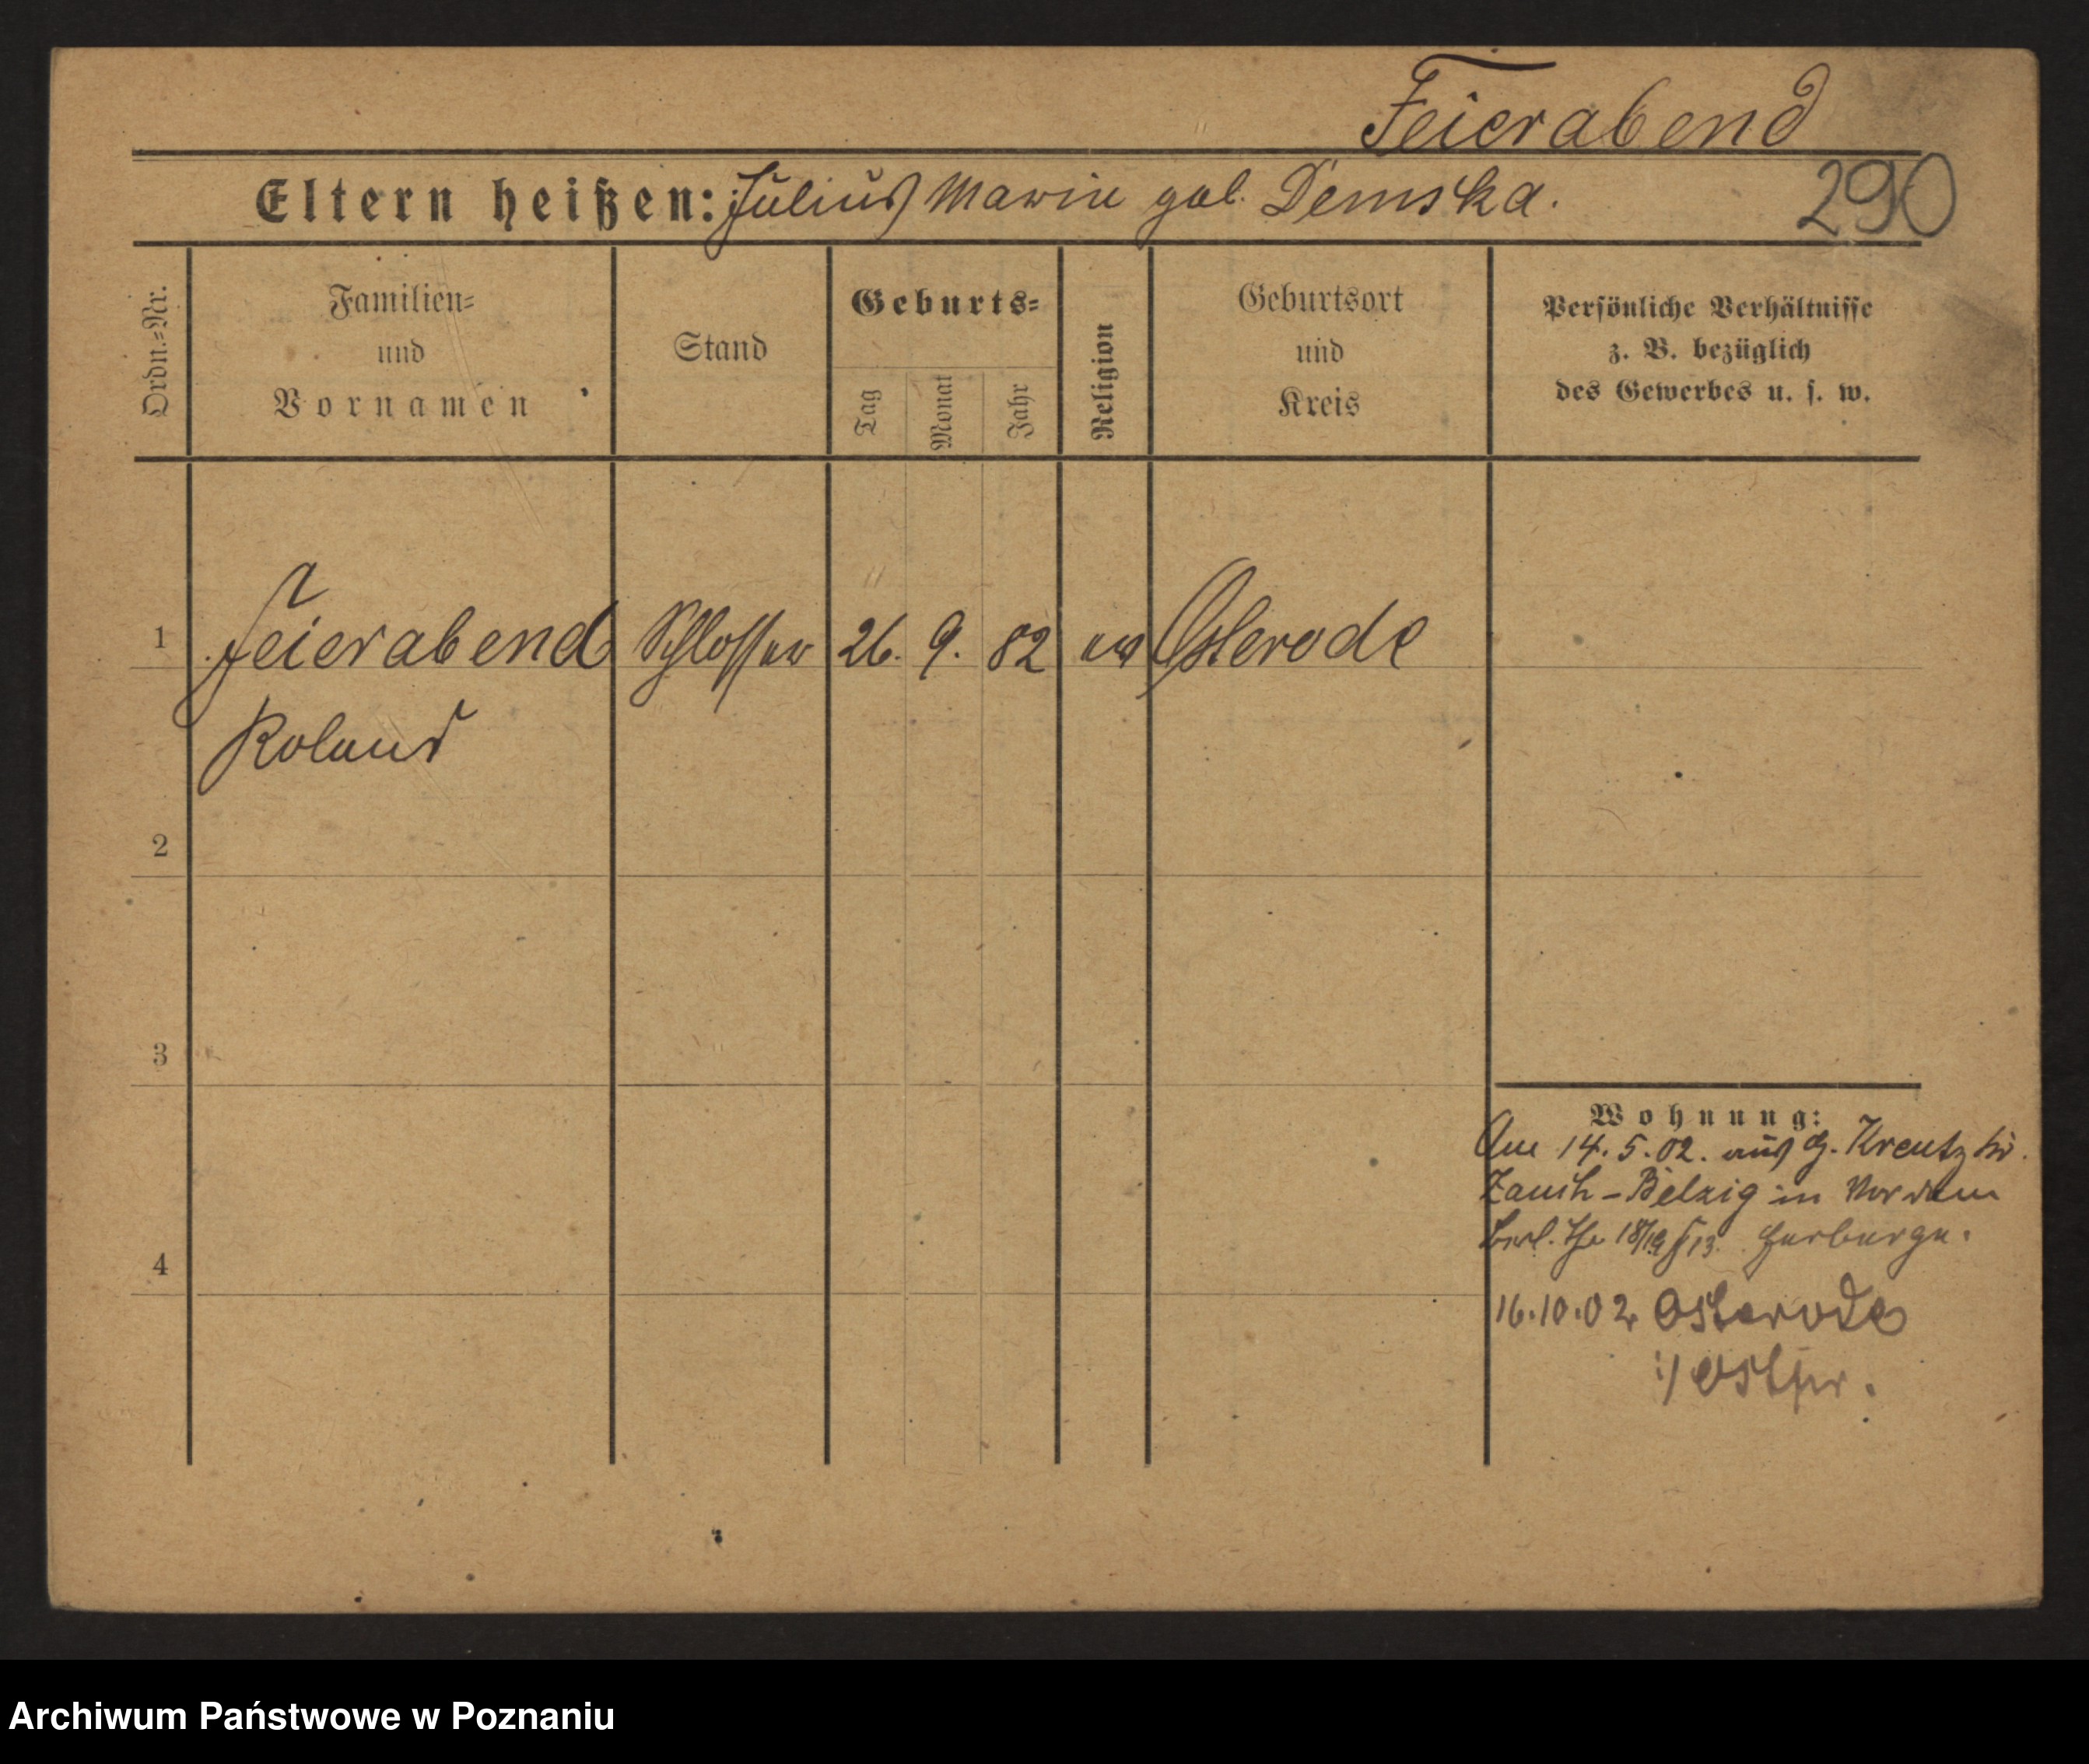 Feierabend
290
Eltern heißen: Julius Marie geb. Demska.
Ordn.-Nr.
Familien- und Vornamen
Stand
Geburts-
Tag
Monat
Jahr
Religion
Geburtsort und Kreis
Persönliche Verhältnisse
z. B. bezüglich
des Gewerbes u. s. w.
1 Feierabend Schlosser 26. 9. 82 ev Osterode
Roland
2
3
4
Wohnung:
Am 14.5.02. aus G. Kreutz Kr.
Zauch-Belzig in
18/19 13. Herberge.
16.10.02 Osterode
i/ Ostpr.
Archiwum Państwowe w Poznaniu